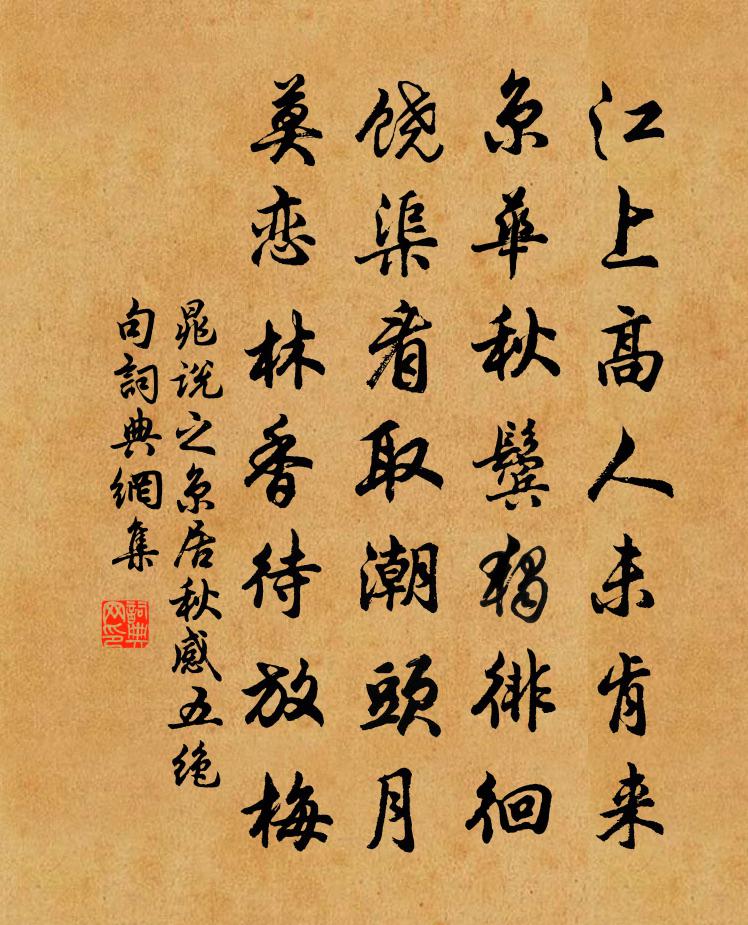 江上高人未肯来
京華秋鬓獨徘徊
饶渠看取潮頭月
莫恋林香待放梅
晁説之京居秋感五绝
句詞典網集
詞典網印